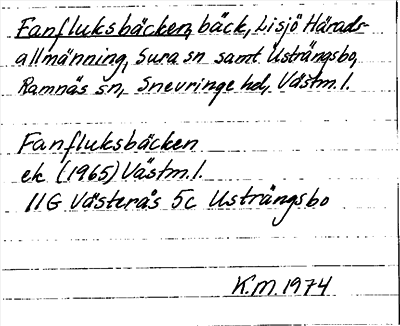 Fanfluksbäcken, bäck, Lisjö Härads-
allmänning, Sura sn samt Usträngsbo,
Ramnäs sn, Snevringe hd, Västm.l.
Fanfluksbäcken
ek (1965) Västm.l.
11G Västerås 5c Usträngsbo
K.M. 1974